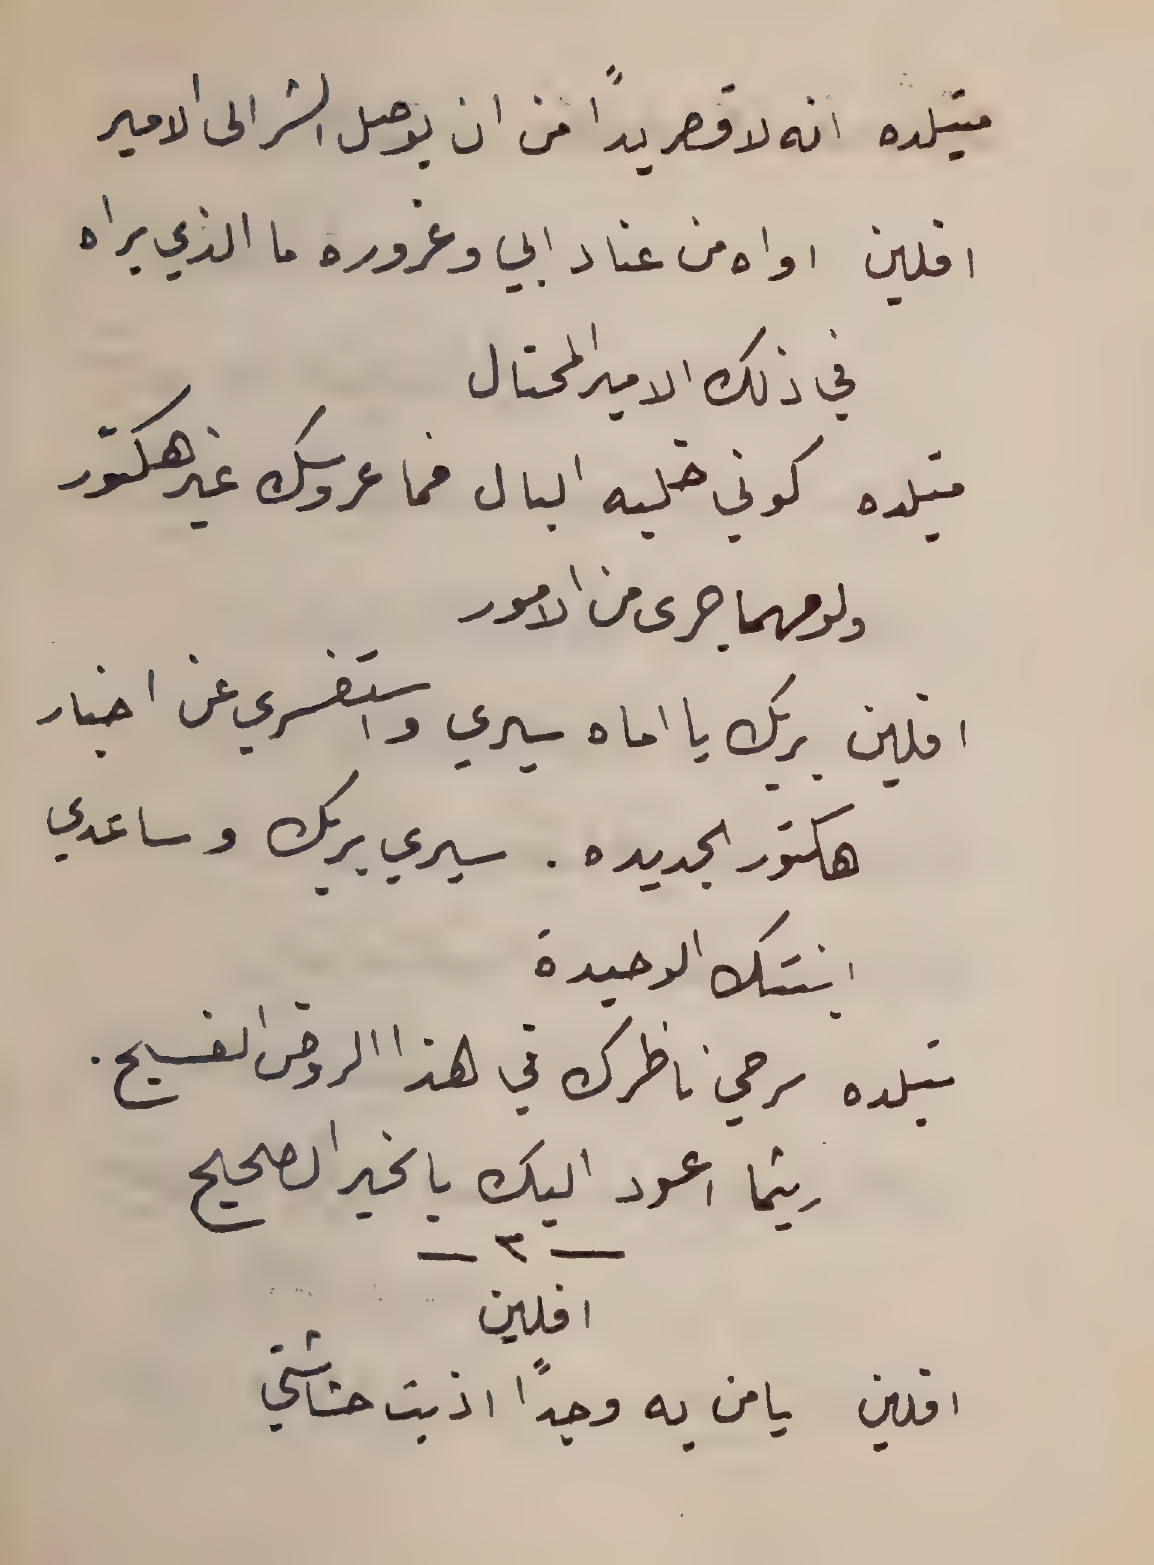 متيلده انه لا قصر يداً من ان يوصل الشر الى الامير
افلين اواه من عناد ابي وغروره ما الذي يراه
في ذلك الامير المحتال
متيلده كوني خليه البال فما عروسك غير هكتور
ولو مهما جرى من الامور
افلين بربك يا اماه سيري واستفسري عن اخبار
هكتور الجديده . سيري بربك وساعدي
ابنتك الوحيدة
متيلده سرحي ناظرك في هذا الروض الفسيح .
ريثما اعود اليك بالخبر الصحيح
— ٣ —
افلين
افلين يا من به وجداً اذبت حشاشتي